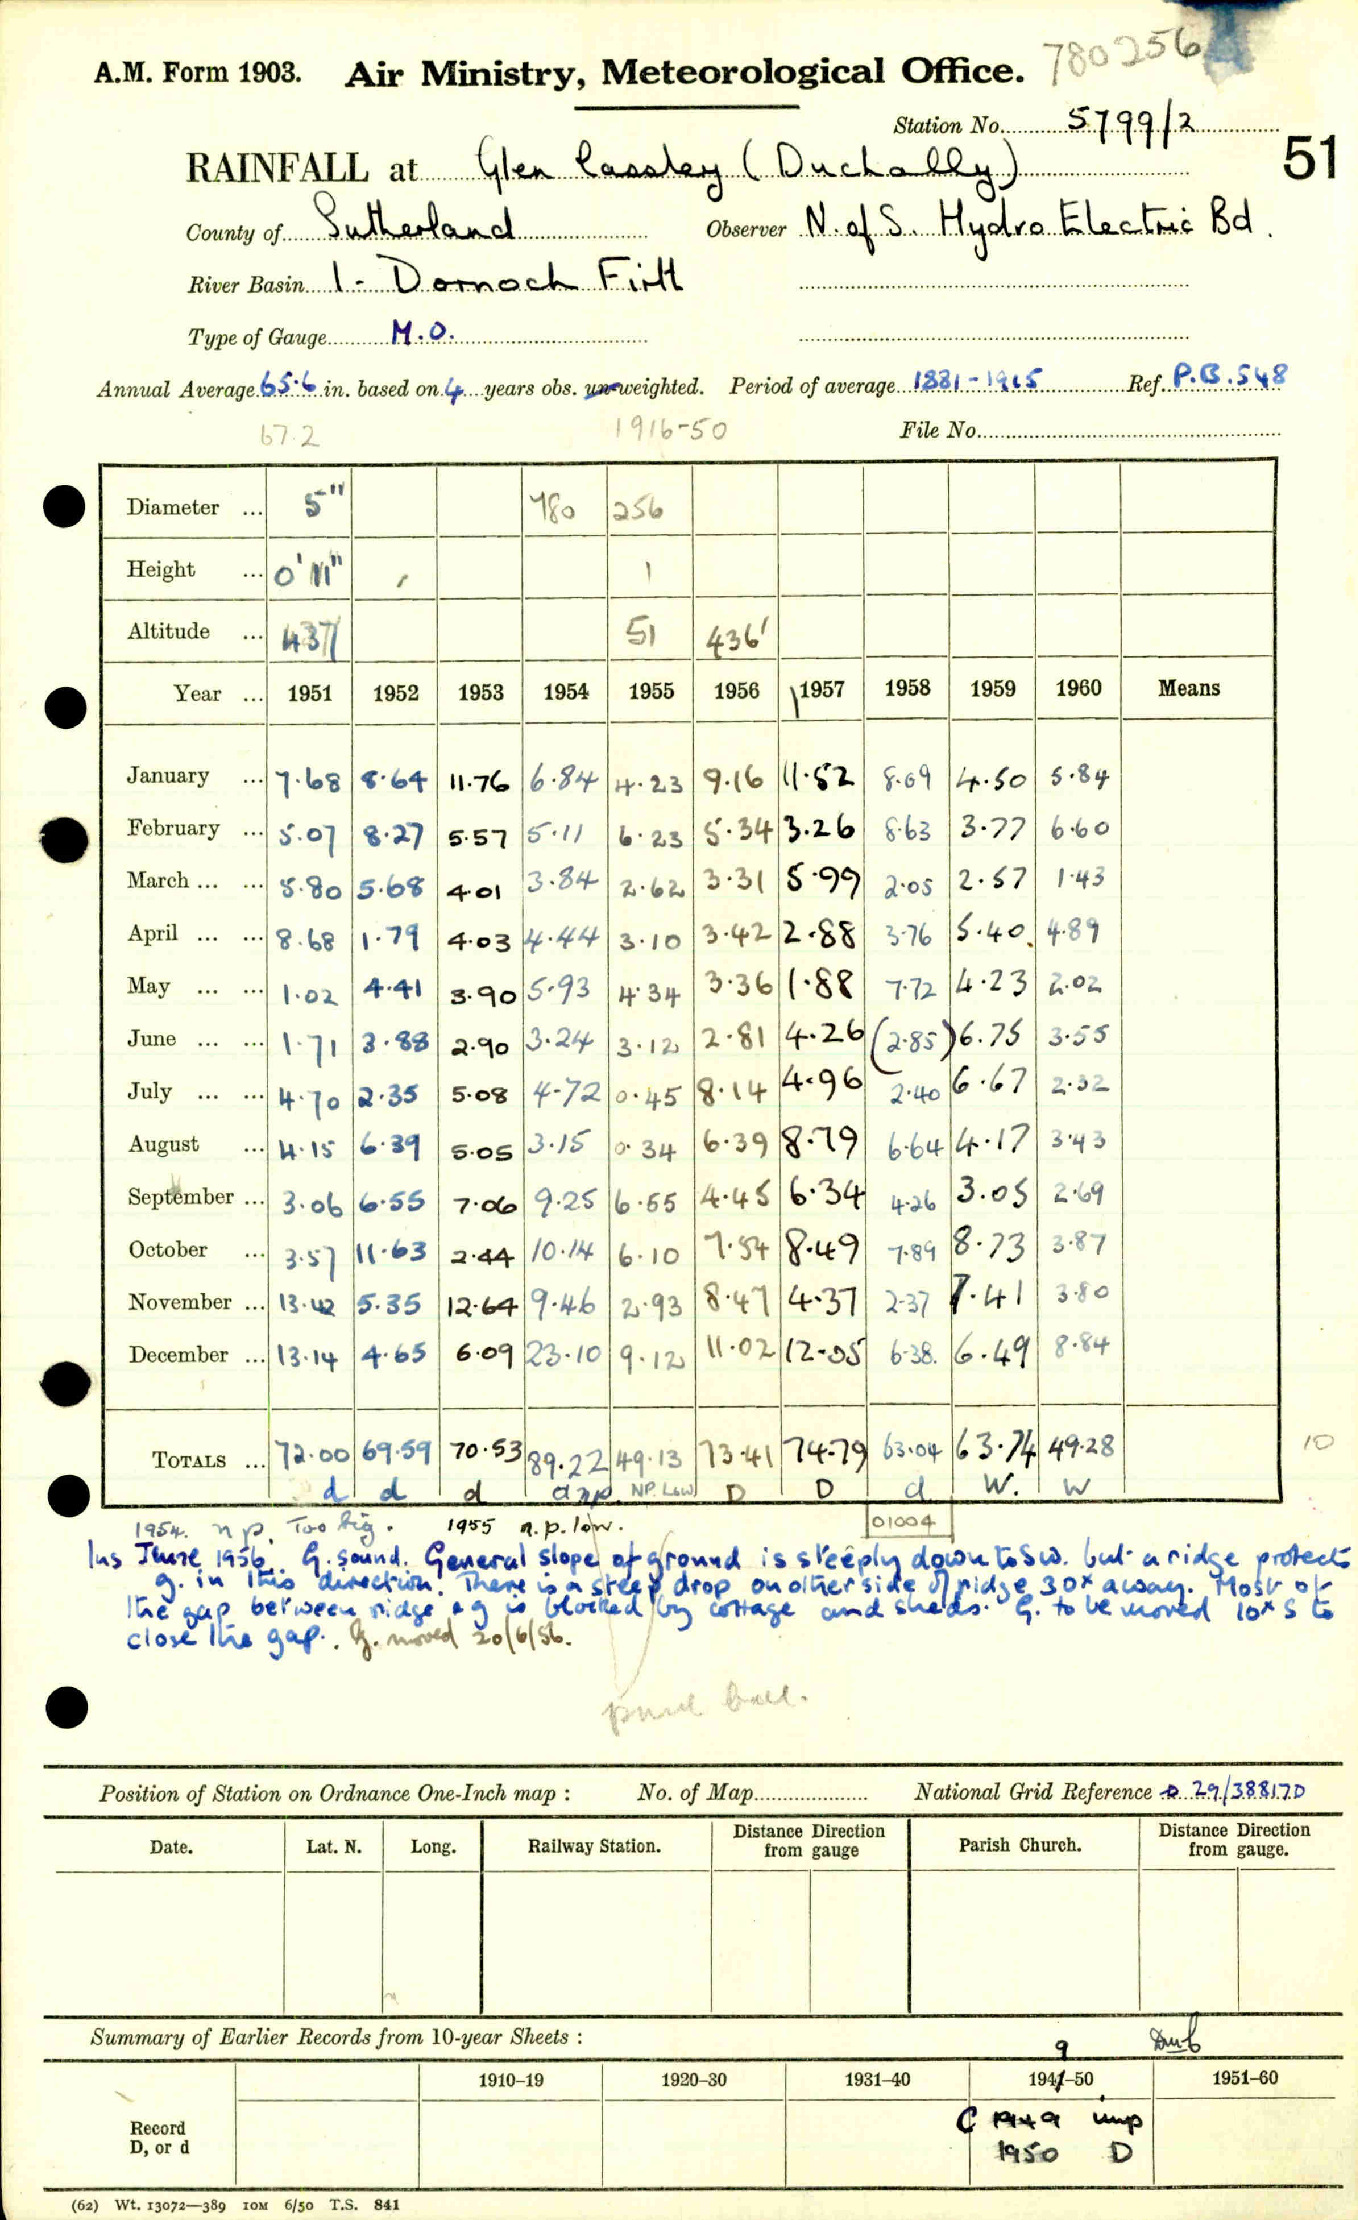 780256
A.M. Form 1903. Air Ministry, Meteorological Office.
Station No. 5799/2
51
RAINFALL at Glen Cassley (Duchally)
County of Sutherland Observer N. of S. Hydro Electric Bd.
River Basin 1 - Dornoch Firth
Type of Gauge M.O.
Annual Average 65.6 in. based on 4 years obs. un-weighted. Period of average 1881-1915 Ref. P.B. 548
67.2 1916-50 File No.
Diameter ... 5" 780 256
Height ... 0' 11" 1
Altitude ... 437 51 436'
Year ... 1951 1952 1953 1954 1955 1956 1957 1958 1959 1960 Means
January ... 7.68 8.64 11.76 6.84 4.23 9.16 11.52 8.09 4.50 5.84
February ... 5.07 8.27 5.57 5.11 6.23 5.34 3.26 8.63 3.77 6.60
March ... ... 5.80 5.68 4.01 3.84 2.62 3.31 5.99 2.05 2.57 1.43
April ... ... 8.68 1.79 4.03 4.44 3.10 3.42 2.88 3.76 5.40 4.89
May ... ... 1.02 4.41 3.90 5.93 4.34 3.36 1.88 7.72 4.23 2.02
June ... ... 1.71 3.88 2.90 3.24 3.12 2.81 4.26 (2.85) 6.75 3.55
July ... ... 4.70 2.35 5.08 4.72 0.45 8.14 4.96 2.40 6.67 2.32
August ... 4.15 6.39 5.05 3.15 0.34 6.39 8.79 6.64 4.17 3.43
September ... 3.06 6.55 7.06 9.25 6.55 4.45 6.34 4.26 3.05 2.69
October ... 3.57 11.63 2.44 10.14 6.10 7.54 8.49 7.89 8.73 3.87
November ... 13.42 5.35 12.64 9.46 2.93 8.47 4.37 2.37 7.41 3.80
December ... 13.14 4.65 6.09 23.10 9.12 11.02 12.05 6.38 6.49 8.84
TOTALS ... 72.00 69.59 70.53 89.22 49.13 73.41 74.79 63.04 63.74 49.28 10
d d d a n.p. NP. Low D D d W. W
1954. n p. Too big. 1955 n.p. low. 01004
Ins June 1956. G. sound. General slope of ground is steeply down to SW. but a ridge protects
g. in this direction. There is a steep drop on other side of ridge 30x away. Most of
the gap between ridge & g is blocked by cottage and sheds. G. to be moved 10x S to
close the gap. G. moved 20/6/56.
Position of Station on Ordnance One-Inch map : No. of Map National Grid Reference 29/388170
Date. Lat. N. Long. Railway Station. Distance Direction from gauge Parish Church. Distance Direction from gauge.
Summary of Earlier Records from 10-year Sheets :
9
1910-19 1920-30 1931-40 1941-50 1951-60
Record D, or d
C 1949 imp
1950 D
(62) Wt. 13072—389 10M 6/50 T.S. 841